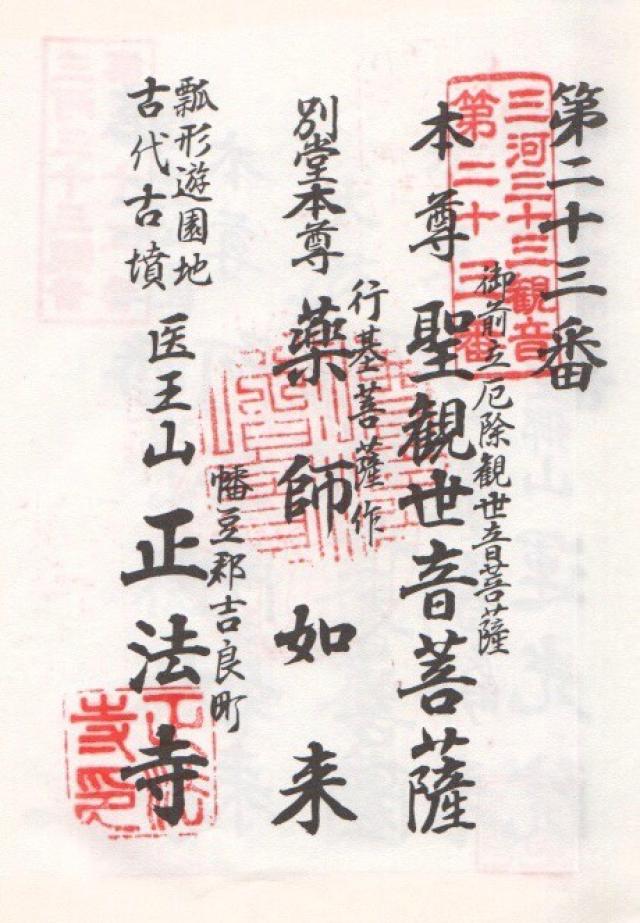 第二十三番
三河三十三観音
第二十三番
御前立厄除観世音菩薩
本尊聖観世音菩薩
行基菩薩作
別堂本尊薬師如来
幡豆郡吉良町
瓢形遊園地
古代古墳
医王山正法寺
正法
寺印